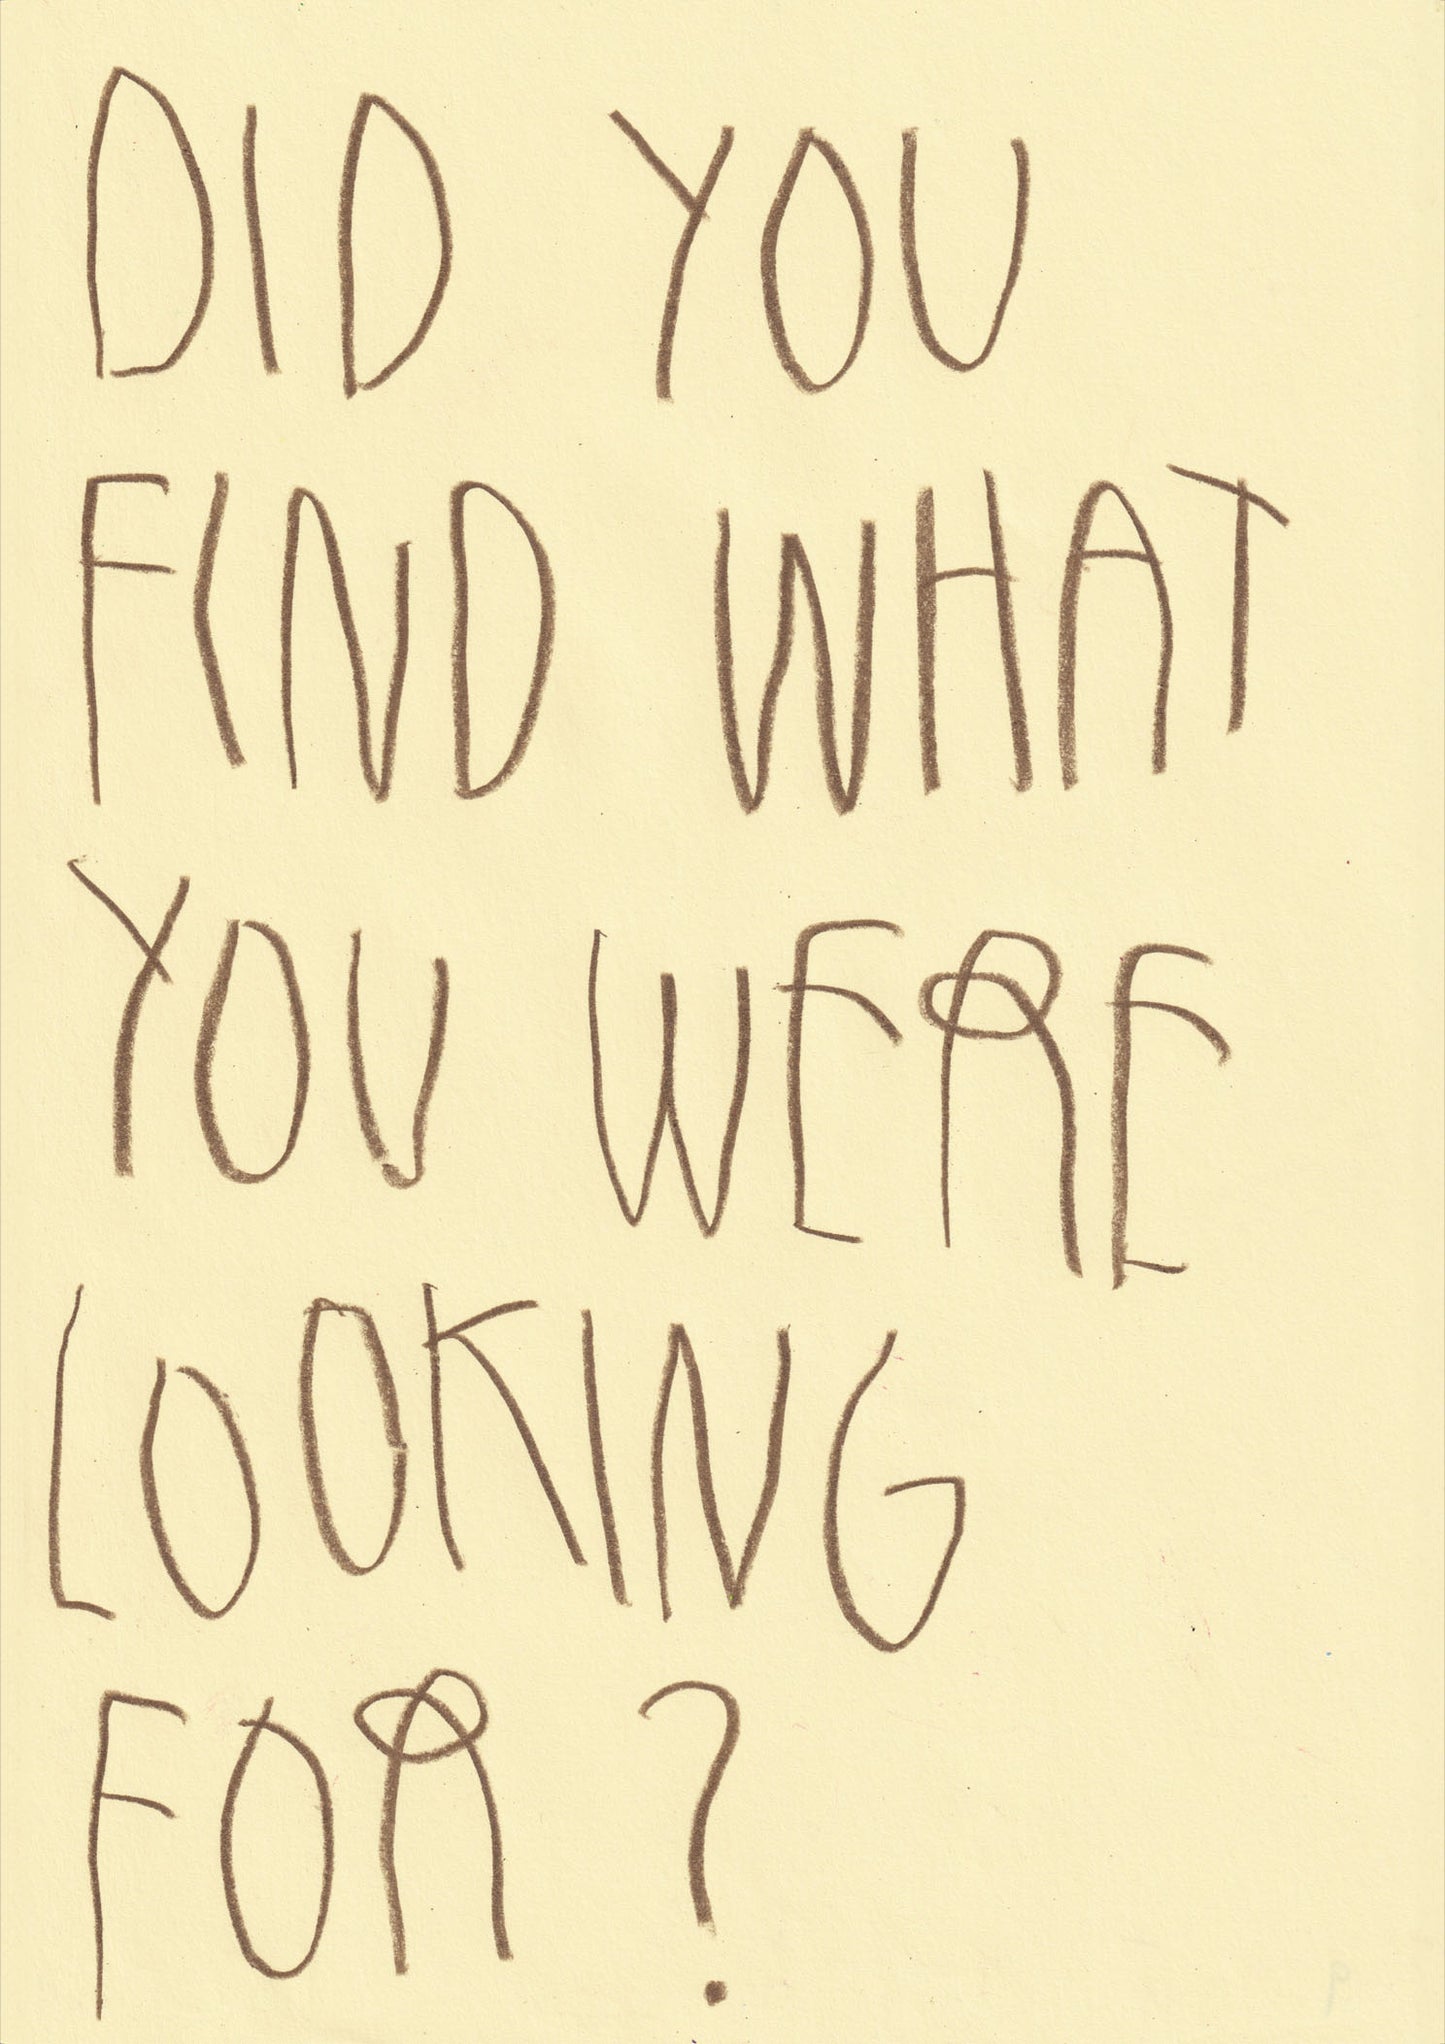 DID YOU
FIND WHAT
YOU WERE
LOOKING
FOR ?